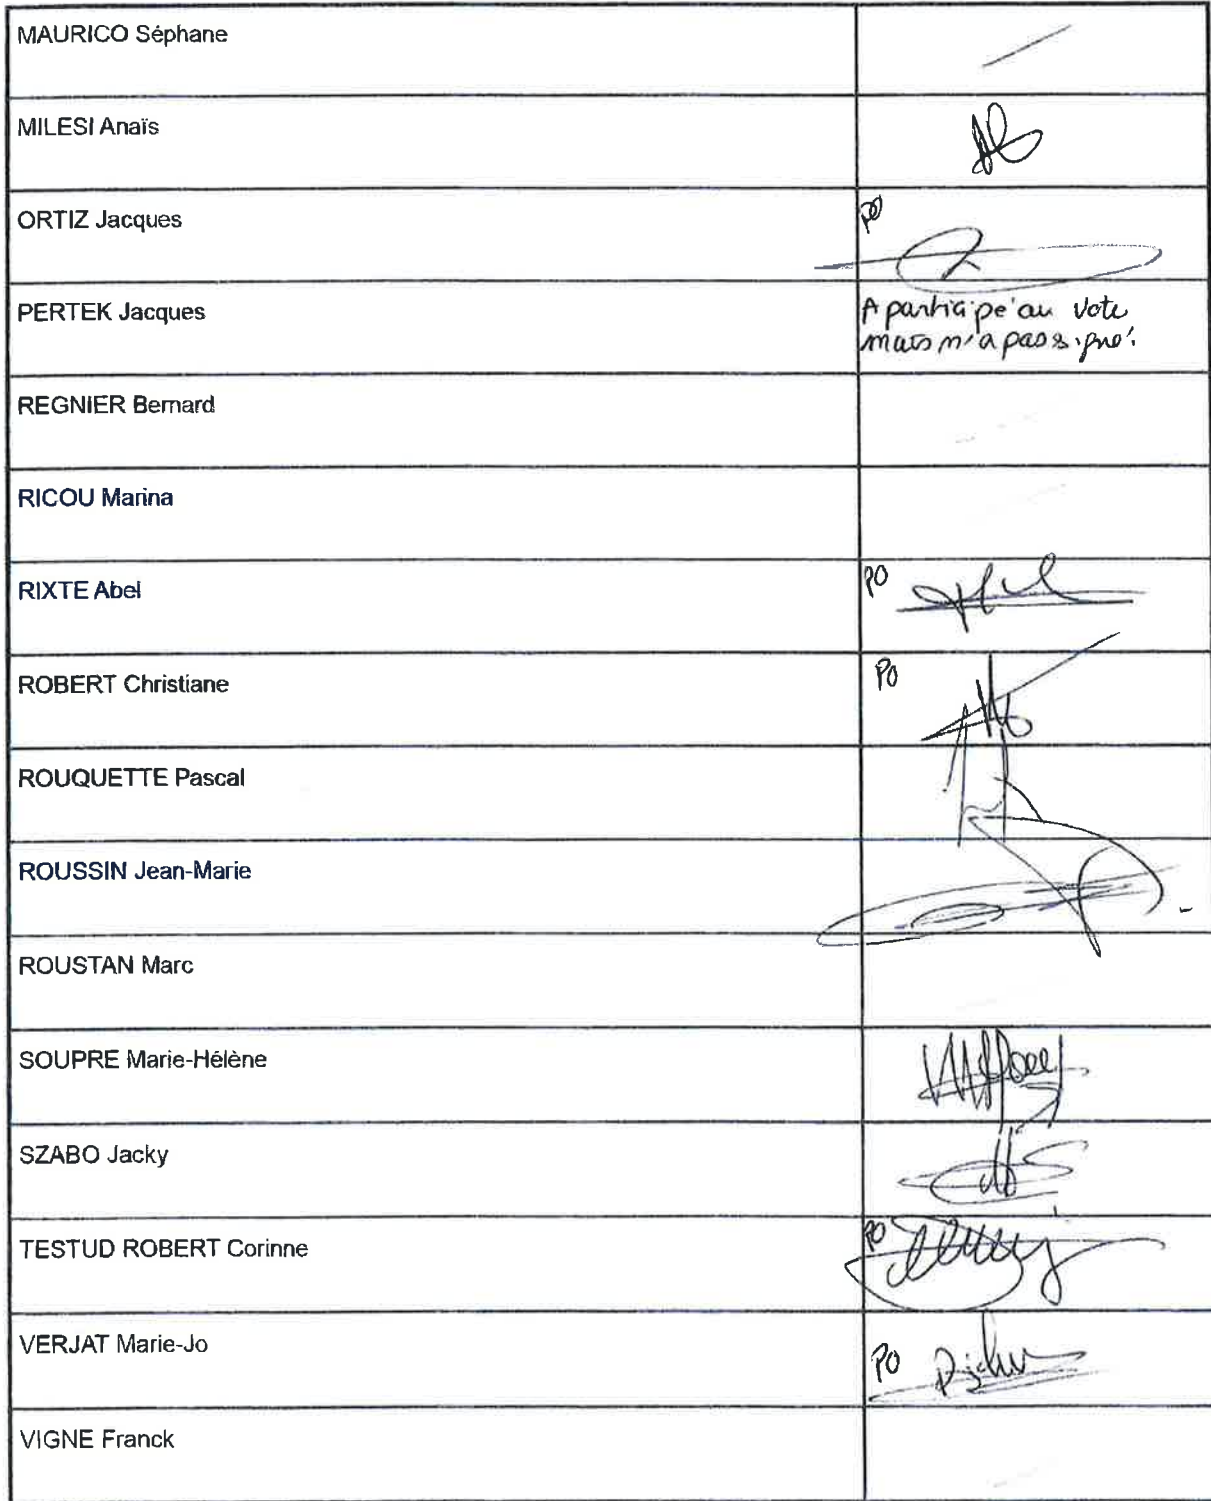 MAURICO Séphane
MILESI Anaïs
ORTIZ Jacques
PO
PERTEK Jacques
A participé au vote
mais n'a pas signé.
REGNIER Bernard
RICOU Marina
RIXTE Abel
PO
ROBERT Christiane
PO
ROUQUETTE Pascal
ROUSSIN Jean-Marie
ROUSTAN Marc
SOUPRE Marie-Hélène
SZABO Jacky
TESTUD ROBERT Corinne
PO
VERJAT Marie-Jo
PO
VIGNE Franck